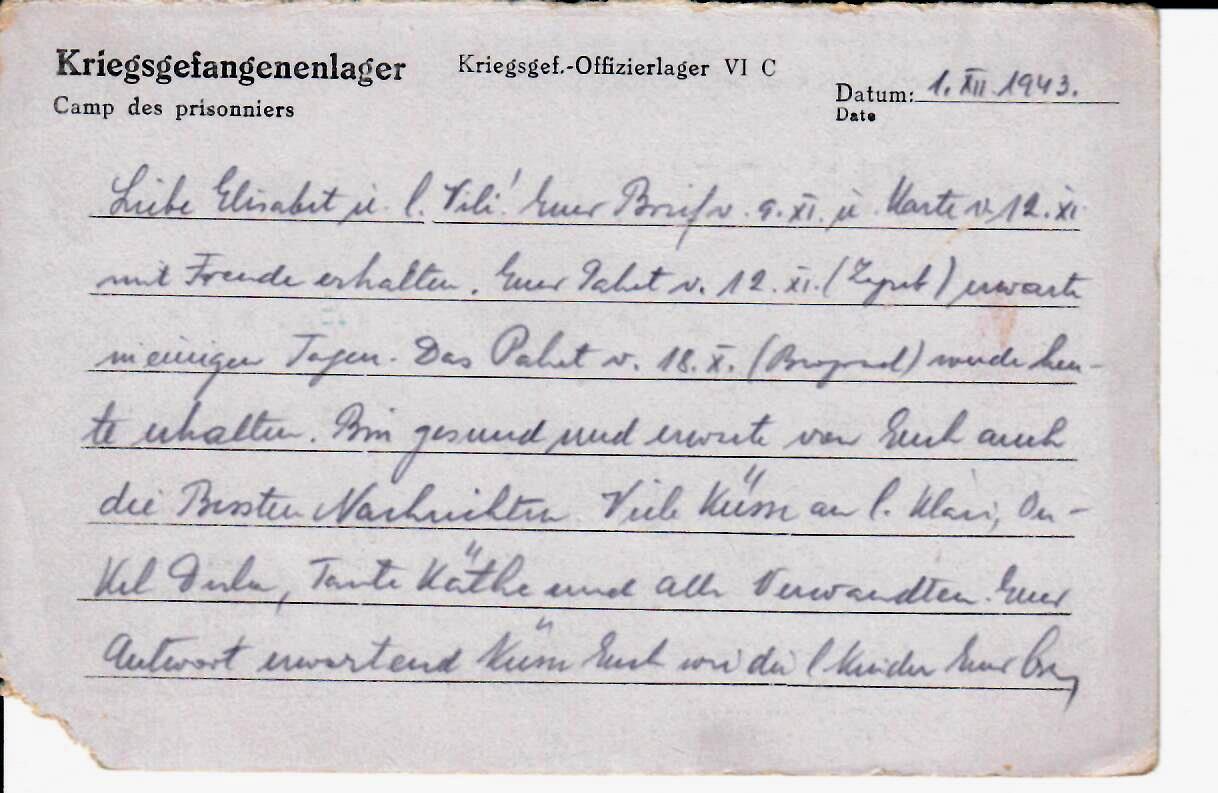 Kriegsgefangenenlager
Camp des prisonniers
Kriegsgef.-Offizierlager VI C
Datum: 1. XII. 1943.
Date
Liebe Elisabet u. l. Vili! Euer Brief v. 9. XI. u. Karte v. 12. XI.
mit Freude erhalten. Euer Paket v. 12. XI. (Zagreb) erwarte
in einigen Tagen. Das Paket v. 18. X. (Beograd) wurde heu-
te erhalten. Bin gesund und erwarte von Euch auch
die Bessten Nachrichten. Viele Küsse an l. Klari, On-
kel Tante Käthe und alle Verwandten. Euer
Antwort erwartend Küsse Euch wie die l. Kinder Euer